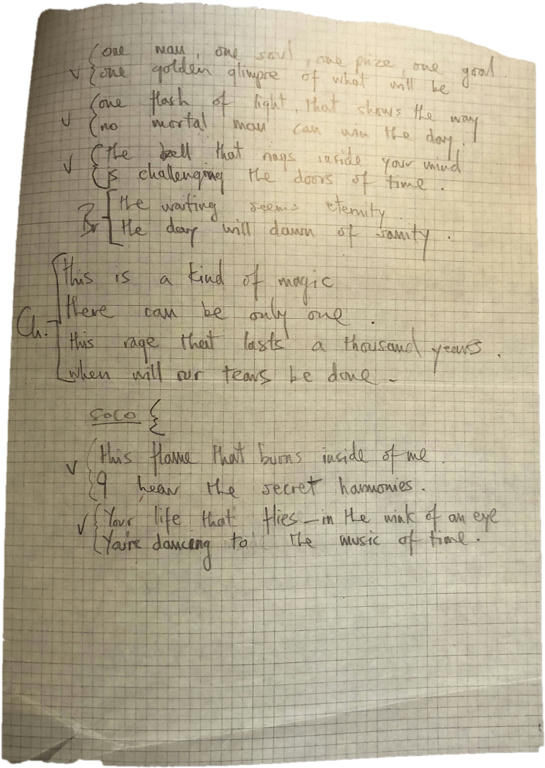 V { one man, one soul, one prize, one goal
{ one golden glimpse of what will be
V { one flash of light, that shows the way
{ no mortal man can win the day.
V { the bell that rings inside your mind
{ is challenging the doors of time.
Br [ the waiting seems eternity
[ the day will dawn of sanity.
Ch. [ this is a kind of magic
there can be only one.
this rage that lasts a thousand years.
when will our tears be done.
SOLO {
V { this flame that burns inside of me.
{ I hear the secret harmonies.
V { Your life that flies in the wink of an eye
{ You're dancing to the music of time.